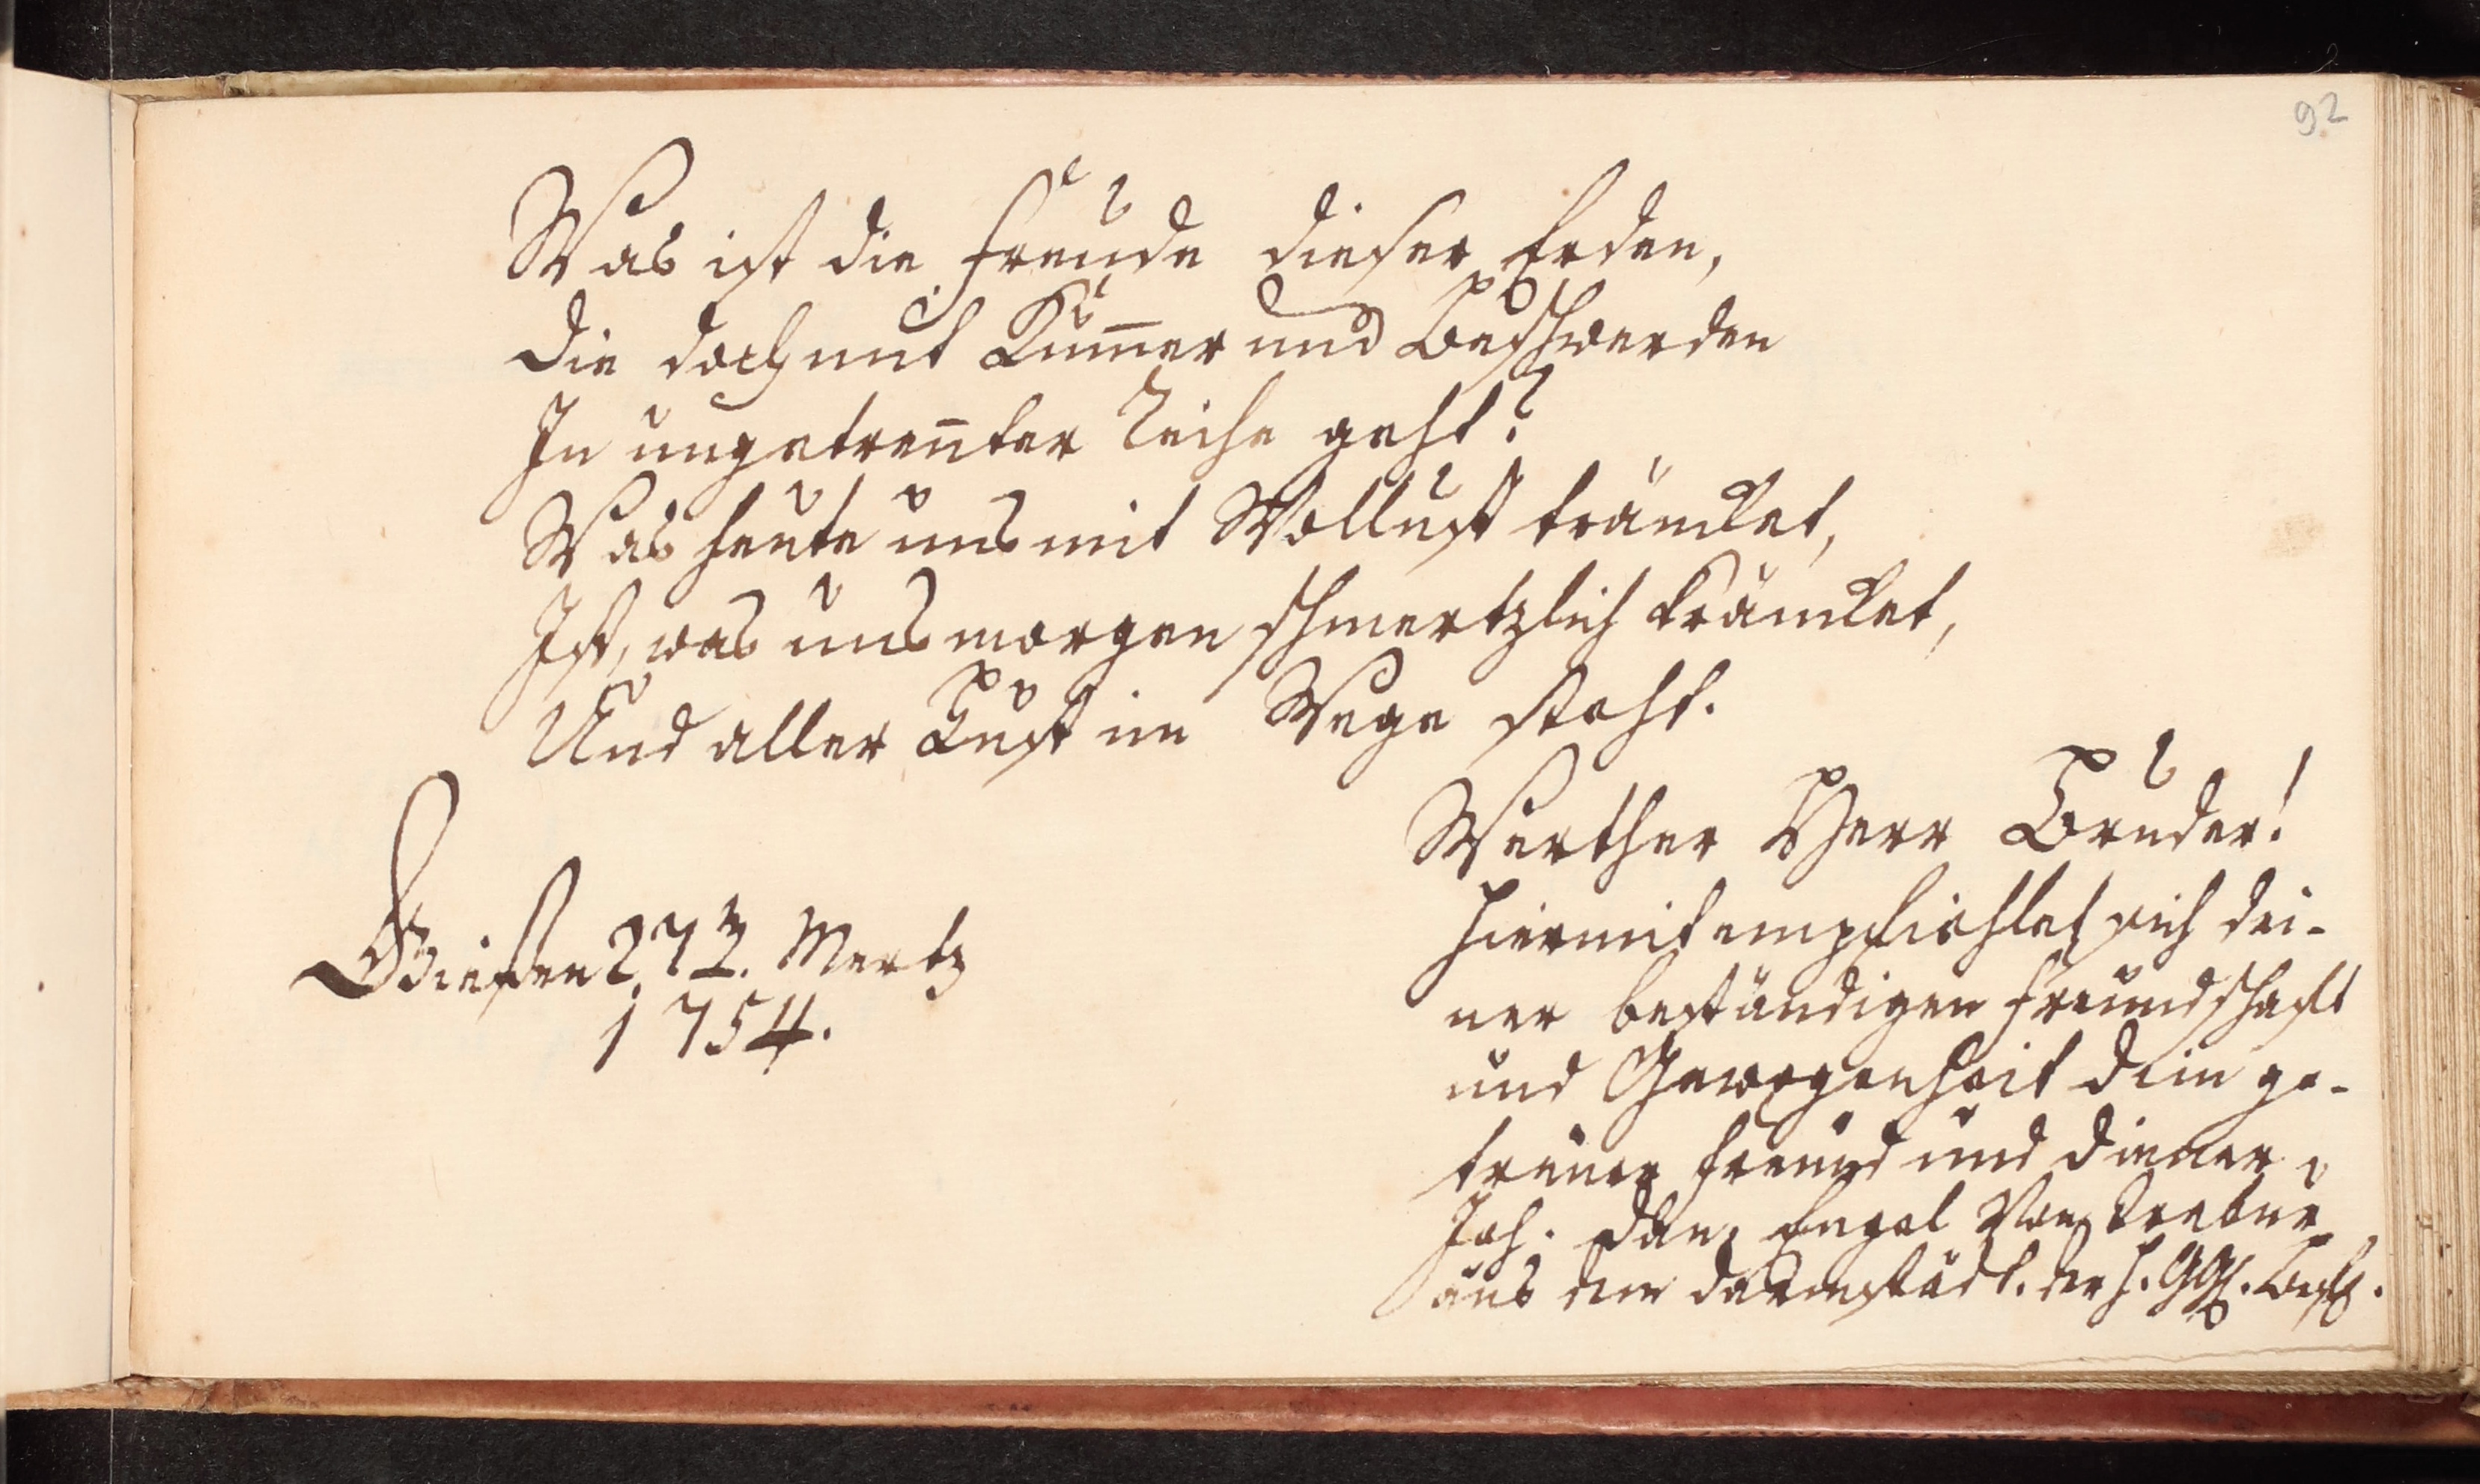 92
Was ist die Freude dieser Erden,
Die doch mit Kum̅er und Beschwerden
In ungetren̅ter Reihe geht?
Was heute uns mit Wollust träncket,
Ist, was uns morgen schmertzlich kräncket,
Und aller Lust im Wege steht.
Giesen 27. Mertz
1754.
Werther Herr Bruder!
Hiermit empfiehlet sich dei-
ner beständigen Freundschafft
und Gewogenheit dein ge-
treuer Freund und Diener
Joh. Dan. Engel Von Trebur
aus dem Darmstädt. der H. GGl. Befl.